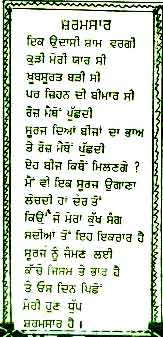 ਸ਼ਰਮਸਾਰ
ਇਕ ਉਦਾਸੀ ਸ਼ਾਮ ਵਰਗੀ
ਕੁੜੀ ਮੇਰੀ ਯਾਰ ਸੀ
ਖ਼ੂਬਸੂਰਤ ਬੜੀ ਸੀ
ਪਰ ਜ਼ਿਹਨ ਦੀ ਬੀਮਾਰ ਸੀ
ਰੋਜ਼ ਮੈਥੋਂ ਪੁੱਛਦੀ
ਸੂਰਜ ਦਿਆਂ ਬੀਜਾਂ ਦਾ ਭਾਅ
ਤੇ ਰੋਜ਼ ਮੈਥੋਂ ਪੁੱਛਦੀ
ਇਹ ਬੀਜ ਕਿਥੋਂ ਮਿਲਣਗੇ ?
ਮੈਂ ਵੀ ਇਕ ਸੂਰਜ ਉਗਾਣਾ
ਲੋਚਦੀ ਹਾਂ ਦੇਰ ਤੋਂ
ਕਿਉਂ ਜੋ ਮੇਰਾ ਕੁੱਖ ਸੰਗ
ਸਦੀਆਂ ਤੋਂ ਇਹ ਇਕਰਾਰ ਹੈ
ਸੂਰਜ ਨੂੰ ਜੰਮਣ ਲਈ
ਕੱਚੇ ਜਿਸਮ ਤੇ ਭਾਰ ਹੈ
ਤੇ ਓਸ ਦਿਨ ਪਿਛੋਂ
ਮੇਰੀ ਹੁਣ ਧੁੱਪ
ਸ਼ਰਮਸਾਰ ਹੈ ।